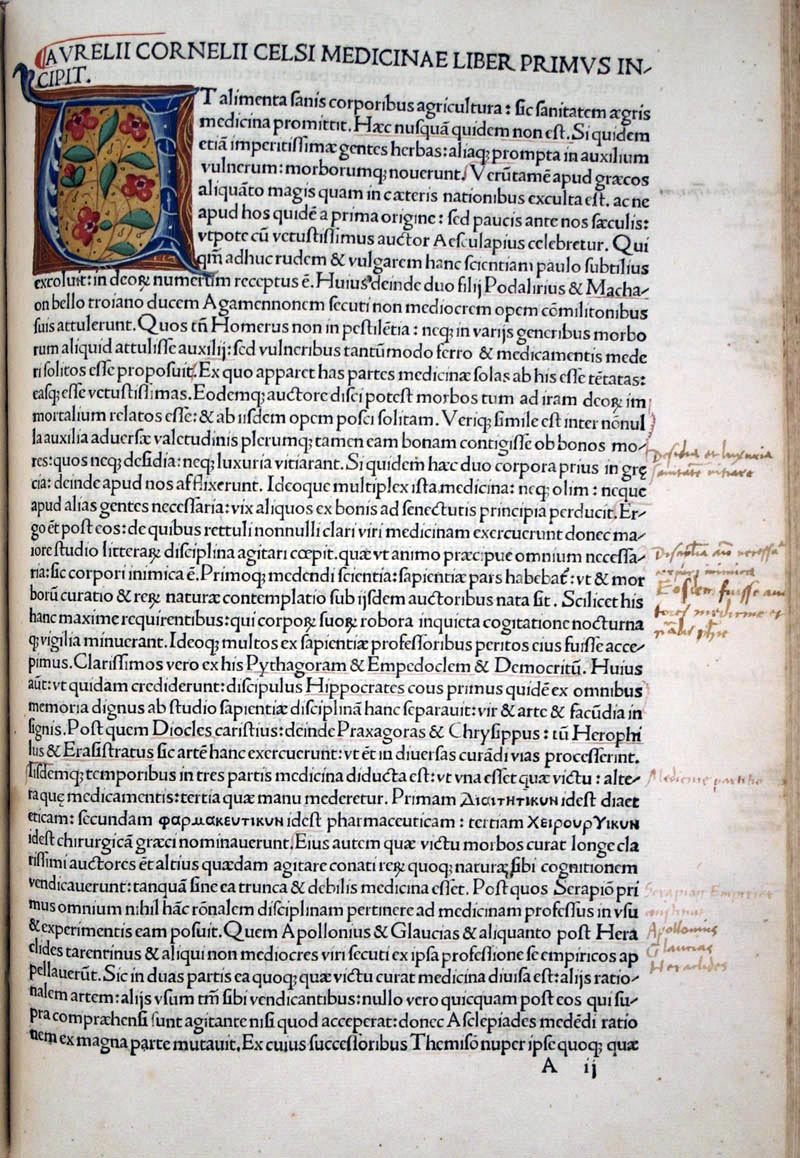 AVRELII CORNELII CELSI MEDICINAE LIBER PRIMVS IN-
CIPIT.
VT alimenta ſanis corporibus agricultura: ſic ſanitatem ægris
medicina promittit. Hæc nuſquā quidem non eſt. Si quidem
etiā imperitiſſimæ gentes herbas: aliaq; prompta in auxilium
vulnerum: morborumq; nouerunt. Verūtamē apud græcos
aliquāto magis quam in cæteris nationibus exculta eſt. ac ne
apud hos quidē a prima origine: ſed paucis ante nos ſæculis:
vtpote cū vetuſtiſſimus auctor Aeſculapius celebretur. Qui
qm̄ adhuc rudem & vulgarem hanc ſcientiam paulo ſubtilius
excoluit: in deoꝝ numerum receptus ē. Huius deinde duo filij Podalirius & Macha-
on bello troiano ducem Agamennonem ſecuti non mediocrem opem cōmilitonibus
ſuis attulerunt. Quos tn̄ Homerus non in peſtilētia: neq; in varijs generibus morbo
rum aliquid attuliſſe auxilij: ſed vulneribus tantūmodo ferro & medicamentis mede
ri ſolitos eſſe propoſuit. Ex quo apparet has partes medicinæ ſolas ab his eſſe tētatas:
eaſq; eſſe vetuſtiſſimas. Eodemq; auctore diſci poteſt morbos tum ad iram deoꝝ im
mortalium relatos eſſe: & ab iiſdem opem poſci ſolitam. Veriq; ſimile eſt inter nōnul
la auxilia aduerſæ valetudinis plerumq; tamen eam bonam contigiſſe ob bonos mo-
res: quos neq; deſidia: neq; luxuria vitiarant. Si quidem hæc duo corpora prius in grę
cia: deinde apud nos afflixerunt. Ideoque multiplex iſta medicina: neq; olim: neque
apud alias gentes neceſſaria: vix aliquos ex bonis ad ſenectutis principia perducit. Er-
go ēt poſt eos: de quibus rettuli nonnulli clari viri medicinam exercuerunt donec ma-
iore ſtudio litteraꝝ diſciplina agitari cœpit. quæ vt animo præcipue omnium neceſſa-
ria: ſic corpori inimica ē. Primoq; medendi ſcientia: ſapientiæ pars habebat̄: vt & mor
borū curatio & reꝝ naturæ contemplatio ſub ijſdem auctoribus nata ſit. Scilicet his
hanc maxime requirentibus: qui corpoꝝ ſuoꝝ robora inquieta cogitatione nocturna
q; vigilia minuerant. Ideoq; multos ex ſapientiæ profeſſoribus peritos eius fuiſſe acce-
pimus. Clariſſimos vero ex his Pythagoram & Empedoclem & Democritū. Huius
aūt: vt quidam crediderunt: diſcipulus Hippocrates cous primus quidē ex omnibus
memoria dignus ab ſtudio ſapientiæ diſciplinā hanc ſeparauit: vir & arte & facūdia in
ſignis. Poſt quem Diocles cariſtius: deinde Praxagoras & Chryſippus: tū Herophi
lus & Eraſiſtratus ſic artē hanc exercuerunt: vt ēt in diuerſas curādi vias proceſſerint.
Iiſdemq; temporibus in tres partis medicina diducta eſt: vt vna eſſet quæ victu: alte-
ra quę medicamentis: tertia quæ manu mederetur. Primam Διαιτητικυν ideſt diæt
eticam: ſecundam φαρμακευτικυν ideſt pharmaceuticam: tertiam Χειρουργικυν
ideſt chirurgicā græci nominauerunt. Eius autem quæ victu morbos curat longe cla
riſſimi auctores ēt altius quædam agitare conati reꝝ quoq; naturæ ſibi cognitionem
vendicauerunt: tanquā ſine ea trunca & debilis medicina eſſet. Poſt quos Serapiō pri
mus omnium nihil hāc rōnalem diſciplinam pertinere ad medicinam profeſſus in vſu
& experimentis eam poſuit. Quem Apollonius & Glaucias & aliquanto poſt Hera
clides tarentinus & aliqui non mediocres viri ſecuti ex ipſa profeſſione ſe empiricos ap
pellauerūt. Sic in duas partis ea quoq; quæ victu curat medicina diuiſa eſt: alijs ratio-
nalem artem: alijs vſum tm̄ ſibi vendicantibus: nullo vero quicquam poſt eos qui ſu-
pra compræhenſi ſunt agitante niſi quod acceperat: donec Aſclepiades medēdi ratio
nem ex magna parte mutauit. Ex cuius ſucceſſoribus Themiſō nuper ipſe quoq; quæ
A ij
Apollonius
Glaucias
Heraclides